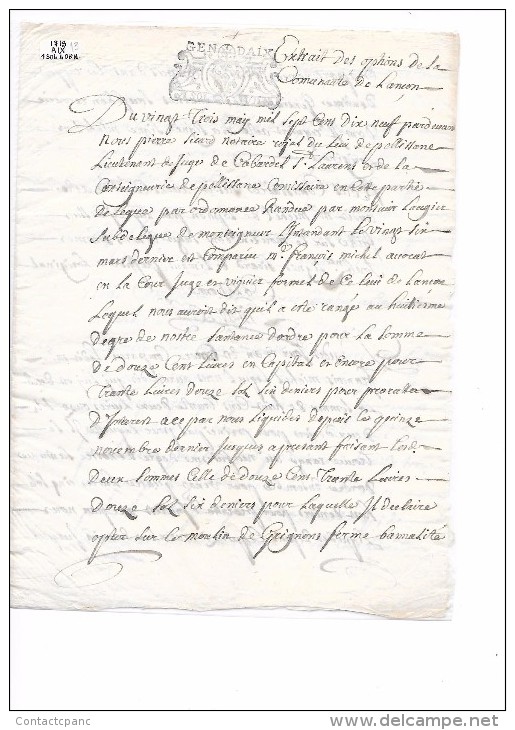 1719
AIX
1 SOL 4 DEN
GEN DAIX
Extrait des options de la
Comunauté de Lançon
Du vingt Trois may mil sept Cens Dix neuf pardevant
Nous pierre sicard notaire royal du lieu de pellissane
Lieutenant de Juge de Cabardel St Laurens et de la
Conseigneurie de pellissane Comissaire en Cette partie
delegué par ordonnance Randue par monsieur Laugier
subdelegué de monseigneur L'Intandant le vingt six
mars dernier est Comparu Mr françois michel avocat
en la Cour Juge et viguier formel de Ce lieu de Lançon
Lequel nous auroit dit qu'il a esté rangé au huitieme
degre de nostre santance d'ordre pour la somme
de douze Cens Livres en Capital et encore pour
Trante Livres douze sol six deniers pour prorata
d'Interest a ce par nous liquides depuis le quinze
novembre dernier Jusques a presant faisant Lesd.
deux sommes Celle de douze Cens Trante Livres
douze sol six deniers pour Laquelle Il declaire
opter sur le moulin de ferme banalité
Contactcpanc
www.delcampe.net